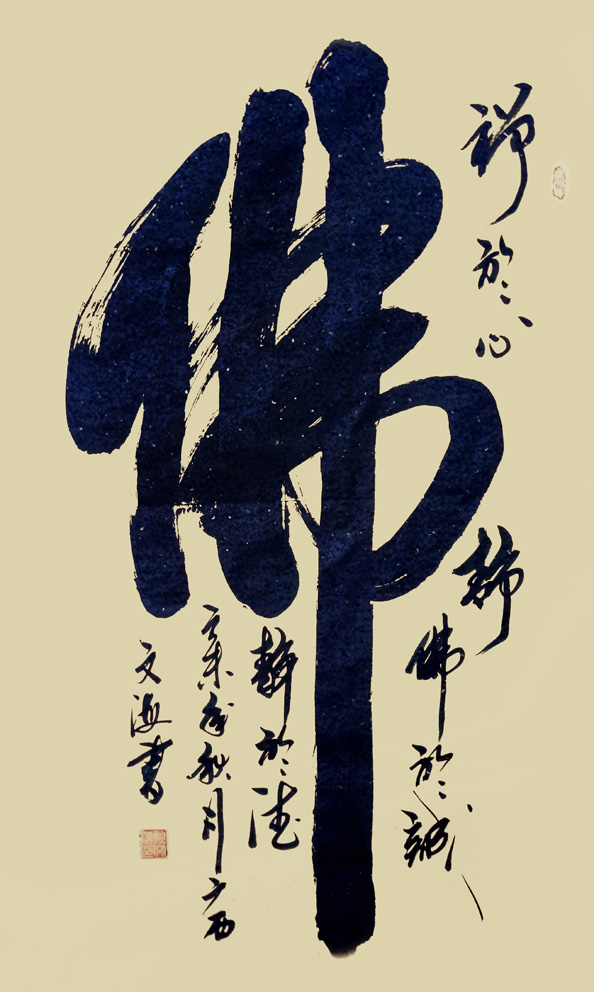 佛
禅於心
佛於誠
静於德
辛未年秋月广西
文海書